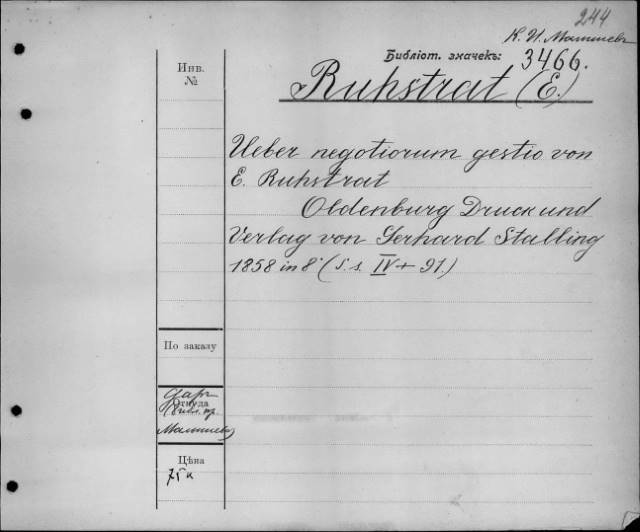 244
К. И. Малышев
Библіот. значекъ: 3466.
Инв.
№
Ruhstrat (E.)
Ueber negotiorum gestio von
E. Ruhstrat
Oldenburg Druck und
Verlag von Gerhard Stalling
1858 in 8° (S. s. IV + 91.)
По заказу
Даръ
Откуда
Малышев
Цѣна
75 к